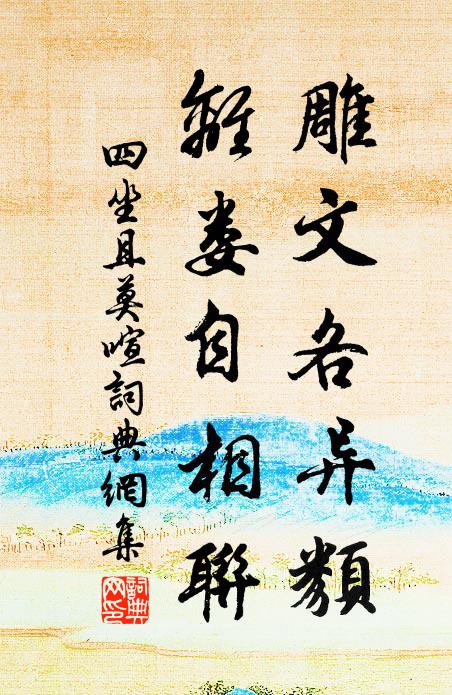 雕文各异類
離娄自相聯
四坐且莫喧詞典網集
詞典网印